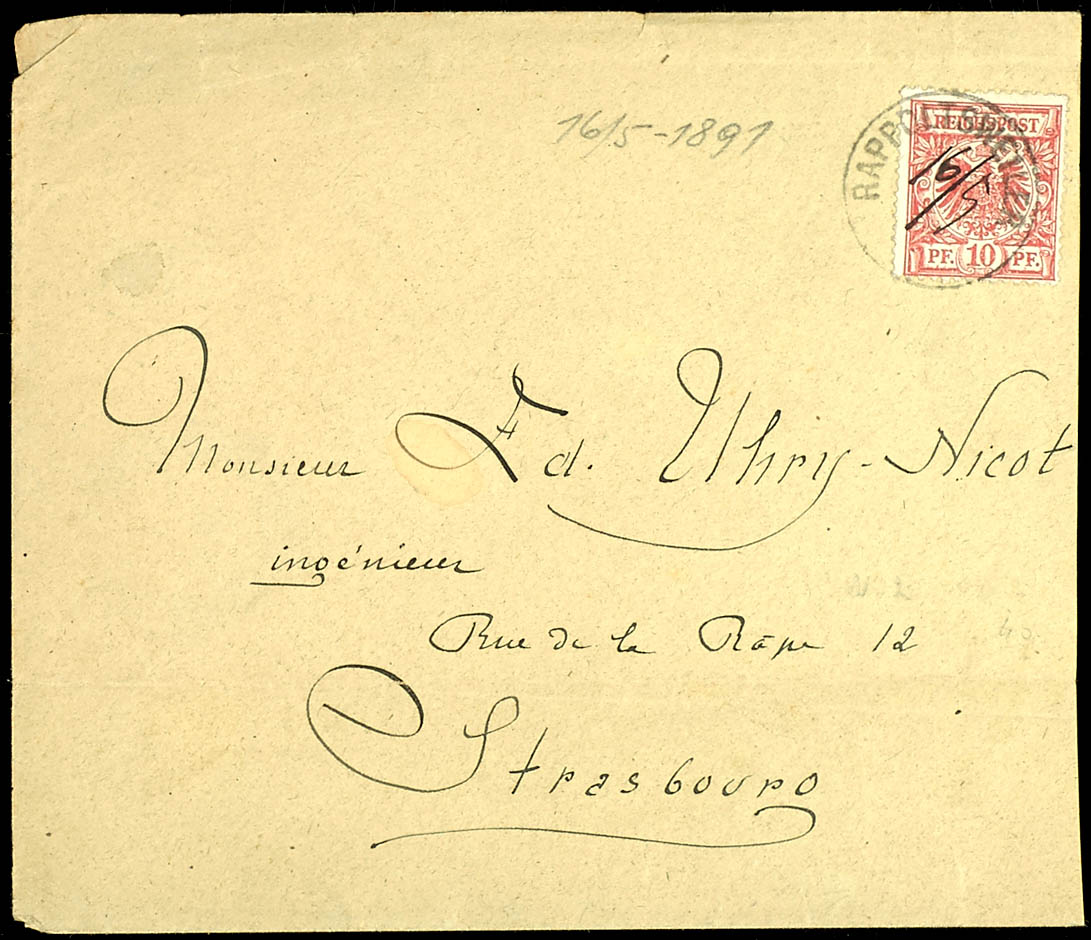 16/5-1891
REICHSPOST
16/5
PF. 10 PF.
Monsieur Ed. Uhry-Nicot
ingénieur
Rue de la Râpe 12
Strasbourg